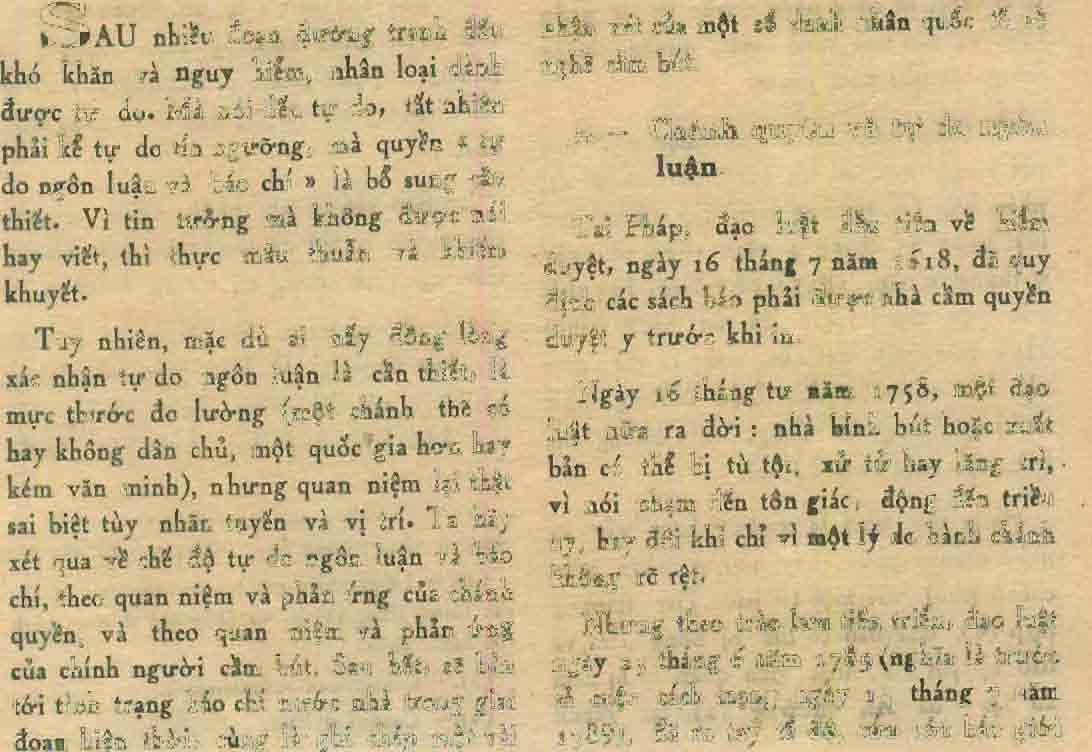 SAU nhiều đoạn đường tranh đấu
khó khăn và nguy hiểm, nhân loại dành
được tự do. Mà nói đến tự do, tất nhiên
phải kể tự do tín ngưỡng, mà quyền « tự
do ngôn luận và báo chí » là bổ sung cần
thiết. Vì tin tưởng mà không được nói
hay viết, thì thực mâu thuẫn và khiếm
khuyết.
Tuy nhiên, mặc dù ai nấy đồng lòng
xác nhận tự do ngôn luận là cần thiết, là
mực thước đo lường (một chánh thể có
hay không dân chủ, một quốc gia hơn hay
kém văn minh), nhưng quan niệm lại thật
sai biệt tùy nhãn tuyến và vị trí. Ta hãy
xét qua về chế độ tự do ngôn luận và báo
chí, theo quan niệm và phản ứng của chánh
quyền, và theo quan niệm và phản ứng
của chính người cầm bút. Sau hết, sẽ bàn
tới tình trạng báo chí nước nhà trong giai
đoạn hiện thời, cùng là ghi chép một vài
nhận xét của một số danh nhân quốc tế về
nghề cầm bút.
— Chánh quyền và tự do ngôn
luận.
Tại Pháp, đạo luật đầu tiên về kiểm
duyệt, ngày 16 tháng 7 năm 1618, đã quy
định các sách báo phải được nhà cầm quyền
duyệt y trước khi in.
Ngày 16 tháng tư năm 1758, một đạo
luật nữa ra đời : nhà bỉnh bút hoặc xuất
bản có thể bị tù tội, xử tử hay lăng trì,
vì nói chạm đến tôn giác, động đến triều
uy, hay đôi khi chỉ vì một lý do hành chánh
không rõ rệt.
Nhưng theo trào lưu tiến triển, đạo luật
ngày tháng 6 năm 1789 (nghĩa là trước
cách mạng, ngày tháng 7 năm
1789),